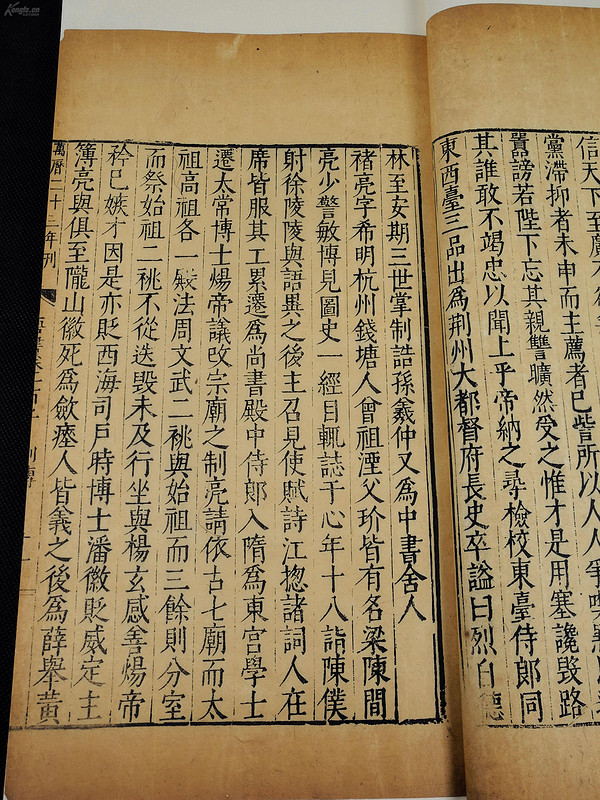 Kongfz.cn
信天下至廣
黨滯抑者未申而主薦者已訾所以人人爭噤
囂謗若陛下忘其親讐曠然受之惟才是用塞讒毀路
其誰敢不竭忠以聞上乎帝納之尋檢校東臺侍郎同
東西臺三品出爲荆州大都督府長史卒諡曰烈自德
林至安期三世掌制誥孫羲仲又爲中書舍人
褚亮字希明杭州錢塘人曾祖湮父玠皆有名梁陳間
亮少警敏博見圖史一經目輒誌于心年十八詣陳僕
射徐陵陵與語異之後主召見使賦詩江揔諸詞人在
席皆服其工累遷爲尚書殿中侍郎入隋爲東宮學士
遷太常博士煬帝議改宗廟之制亮請依古七廟而太
祖高祖各一殿法周文武二祧與始祖而三餘則分室
而祭始祖二祧不從迭毀未及行坐與楊玄感善煬帝
矜已嫉才因是亦貶西海司戶時博士潘徽貶威定主
簿亮與俱至隴山徽死爲斂瘞人皆義之後爲薛舉黃
萬曆二十三年刊